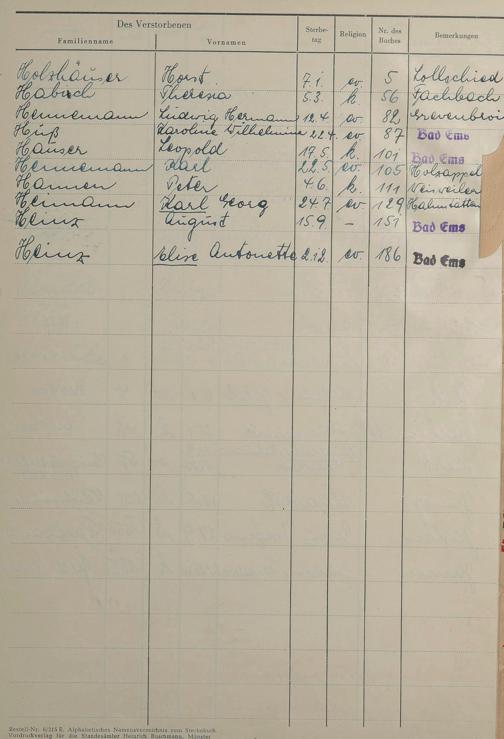 Des Verstorbenen
Familienname Vornamen Sterbe-tag Religion Nr. des Buches Bemerkungen
Holzhäuser Horst 7.1. ev. 5 Lollschied
Habich Theresia 5.3. k. 56 Fachbach
Hennemann Ludwig Hermann 12.4. ev. 82 Grevenbroi
Huß Karoline Wilhelmine 22.4. ev. 87 Bad Ems
Häuser Leopold 19.5. k. 101 Bad Ems
Hennemann Karl 22.5. ev. 105 Holzappel
Hannen Peter 4.6. k. 111 Weisweiler
Heimann Karl Georg 24.7 ev. 129 Hahnstätten
Heinz August 15.9. - 151 Bad Ems
Heinz Elise Antonette 2.12. ev. 186 Bad Ems
Bestell-Nr. 6/215 E. Alphabetisches Namensverzeichnis zum Sterbebuch.
Vordruckverlag für die Standesämter Heinrich Buschmann, Münster